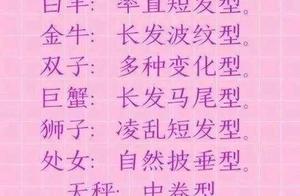 白羊：率直短发型。
金牛：长发波纹型。
双子：多种变化型。
巨蟹：长发马尾型。
狮子：凌乱短发型。
处女：自然披垂型。
天秤：中卷型